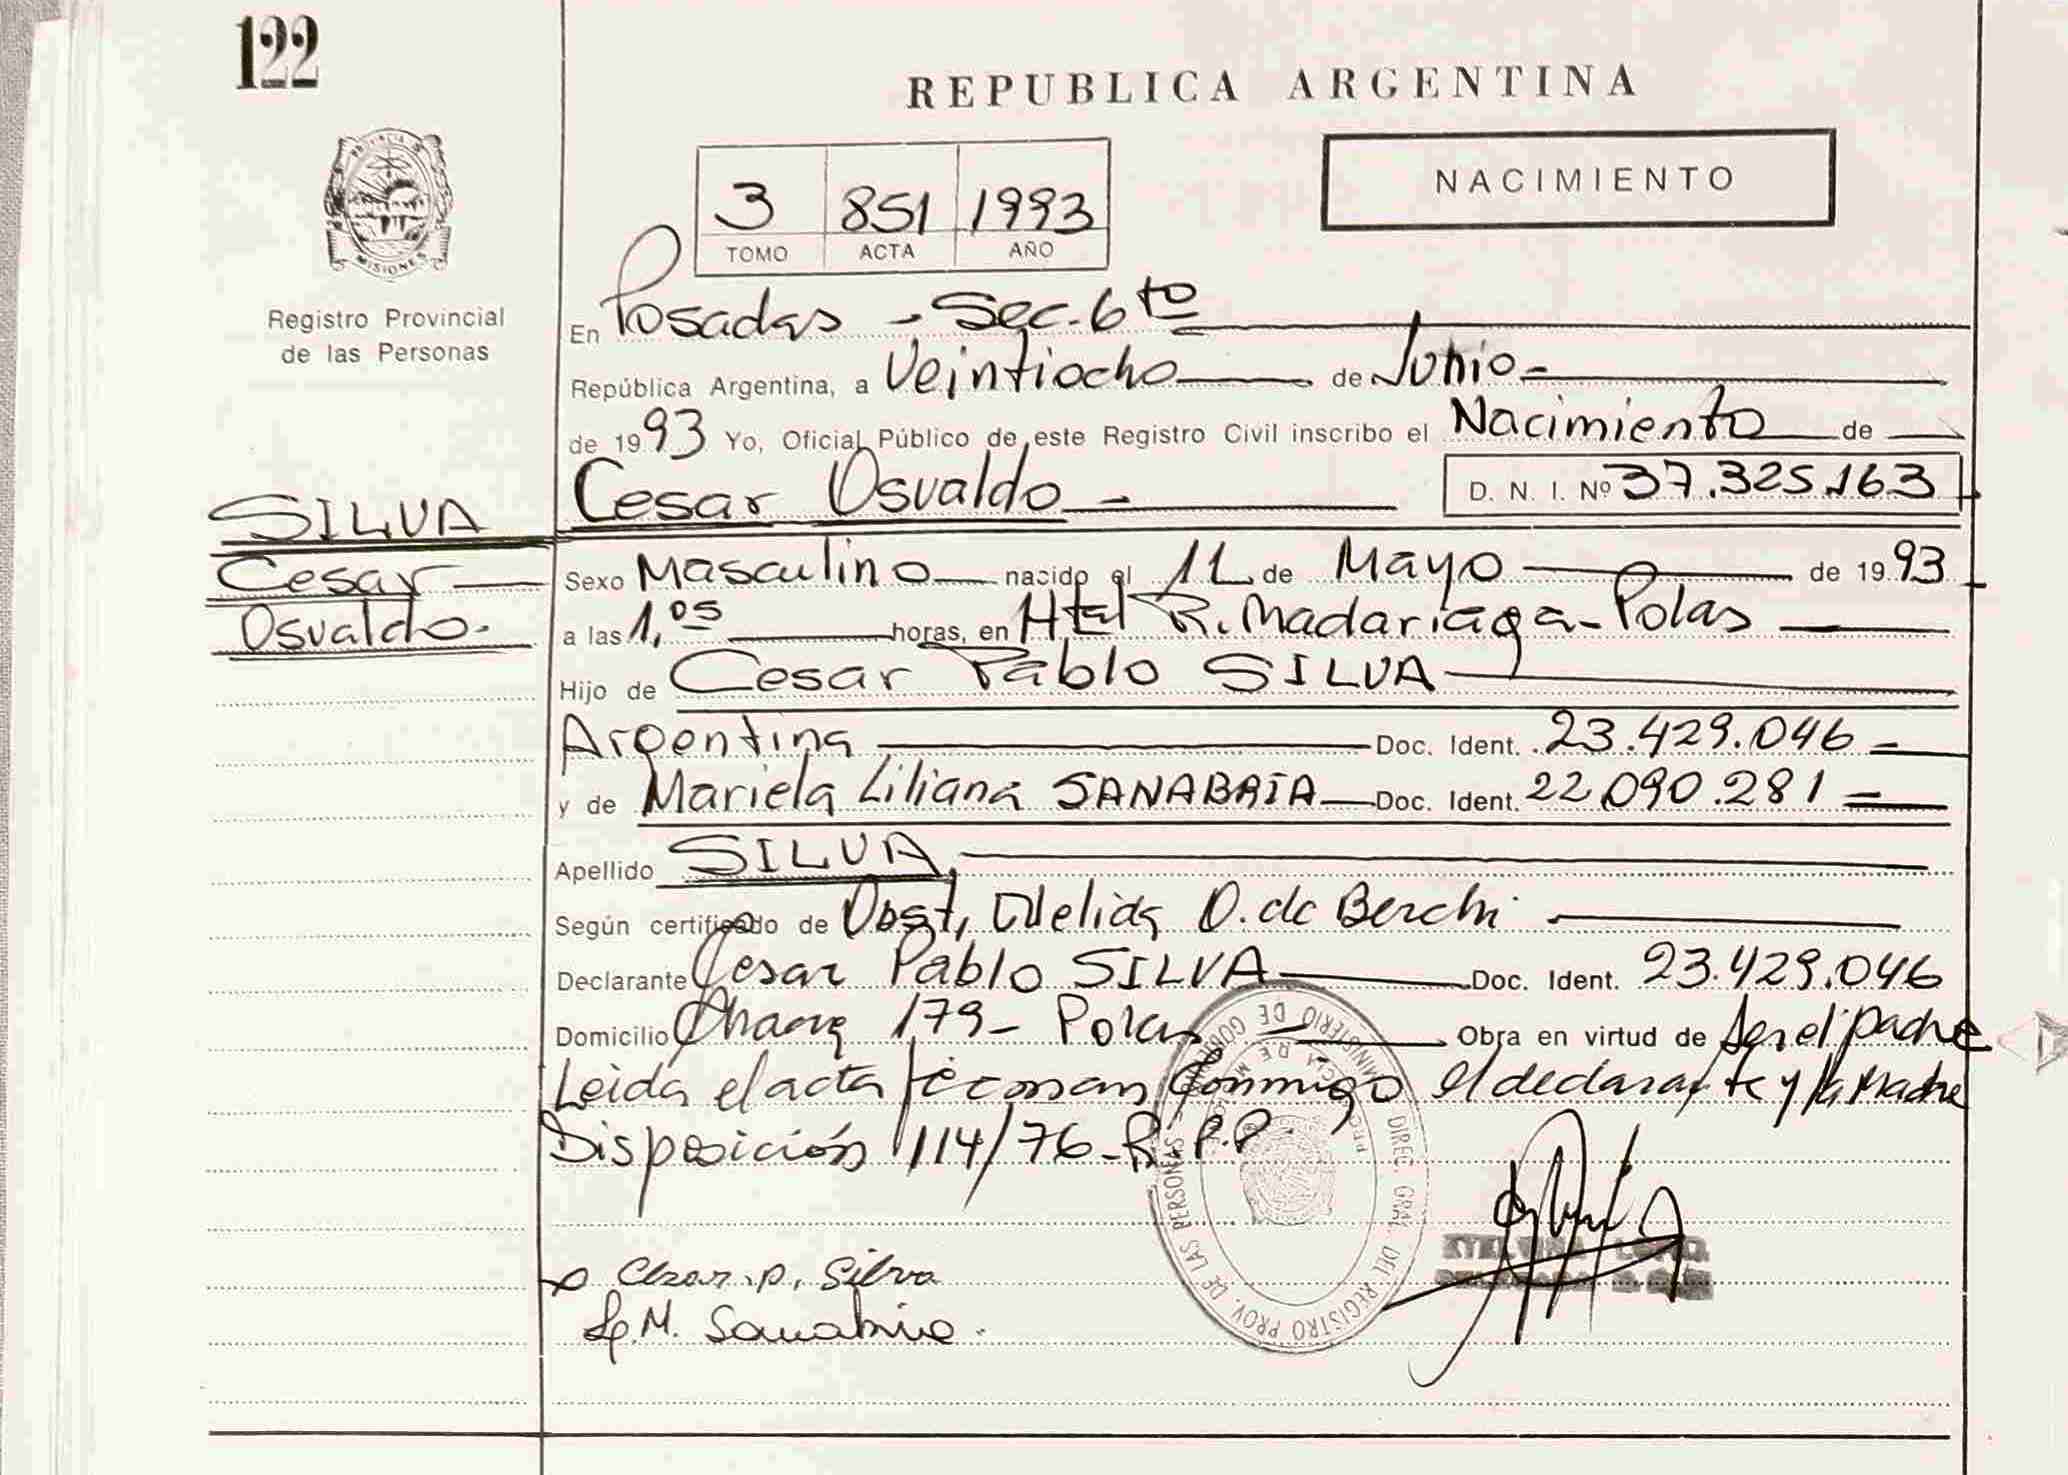 122
REPUBLICA ARGENTINA
NACIMIENTO
3 851 1993
TOMO ACTA AÑO
PROVINCIA DE
MISIONES
Registro Provincial
de las Personas
En Posadas - Sec. 6to
República Argentina, a Veintiocho de Junio -
de 1993 Yo, Oficial Público de este Registro Civil inscribo el Nacimiento de
SILVA
Cesar
Osvaldo.
Cesar Osvaldo - D. N. I. Nº 37.325.163
Sexo Masculino nacido el 11 de Mayo de 1993
a las 1,05 horas, en Htal R. Madariaga - Pdas
Hijo de Cesar Pablo SILVA
Argentina Doc. Ident. 23.429.046 -
y de Mariela Liliana SANABRIA Doc. Ident. 22.090.281 -
Apellido SILVA
Según certificado de Obst, Nelida O. de Berchi
Declarante Cesar Pablo SILVA Doc. Ident. 23.429.046
Domicilio 179 - Pdas Obra en virtud de Ser el padre
Leida el acta firman conmigo el declarante y la Madre
Disposición 114/76 - R.P.P.
MINISTERIO DE
DIREC. GRAL. DEL REGISTRO PROV. DE LAS PERSONAS
Cesar. p. Silva
M. Sanabria.